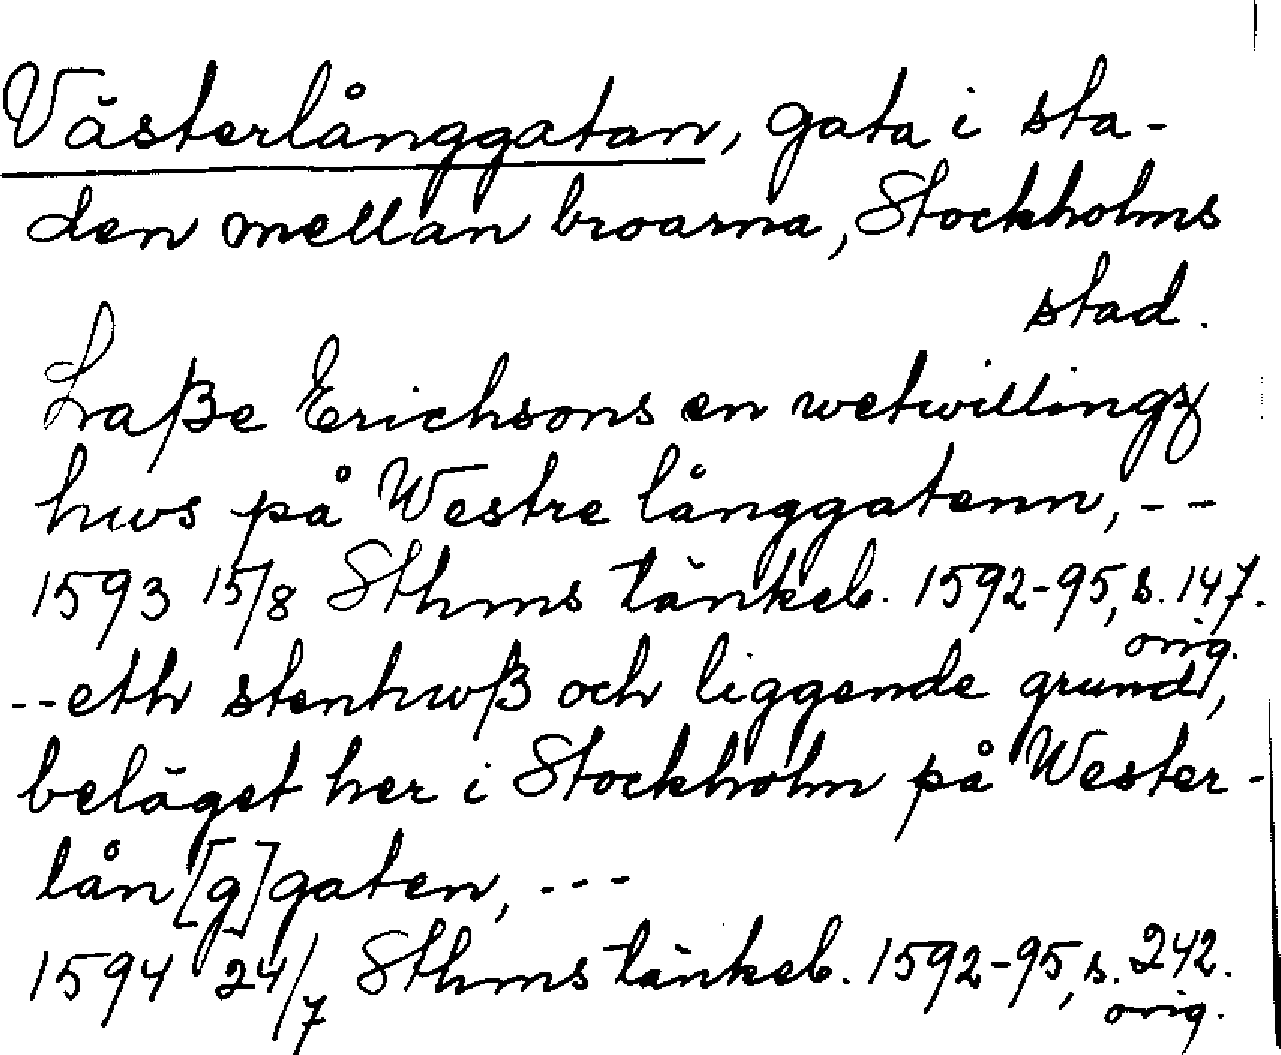 Västerlånggatan, gata i sta-
den mellan broarna, Stockholms
stad.
Laße Erichsons en wetwillingz
hws på Westre långgatenn, - -
1593 15/8 Sthms tänkeb. 1592-95, s. 147.
orig.
-- eth stenhwß och liggende grund,
beläget her i Stockholm på Wester-
lån[g]gaten, ---
1594 24/7 Sthms tänkeb. 1592-95, s. 242.
orig.